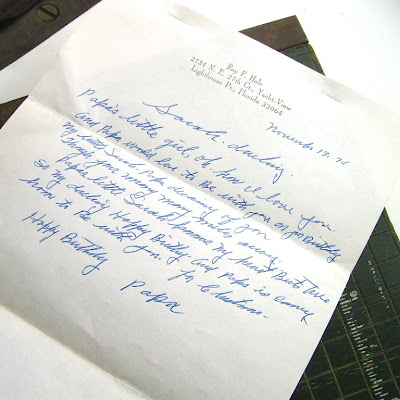 Roy F.
2734 N. E. 27th Ct., Yacht-View
Lighthouse Pt., Florida 33064
November 17.
Sarah-darling.
Papa's little girl, oh, how I love you.
And Papa would love to Be with you on your Birthday
My little Sarah Papa dreaming of you
Though you many many miles away
Papa's little Sarah my heart
So my darling Happy Birthday and Papa is coming
soon to Be with you. for Christmas.
Happy Birthday
Papa